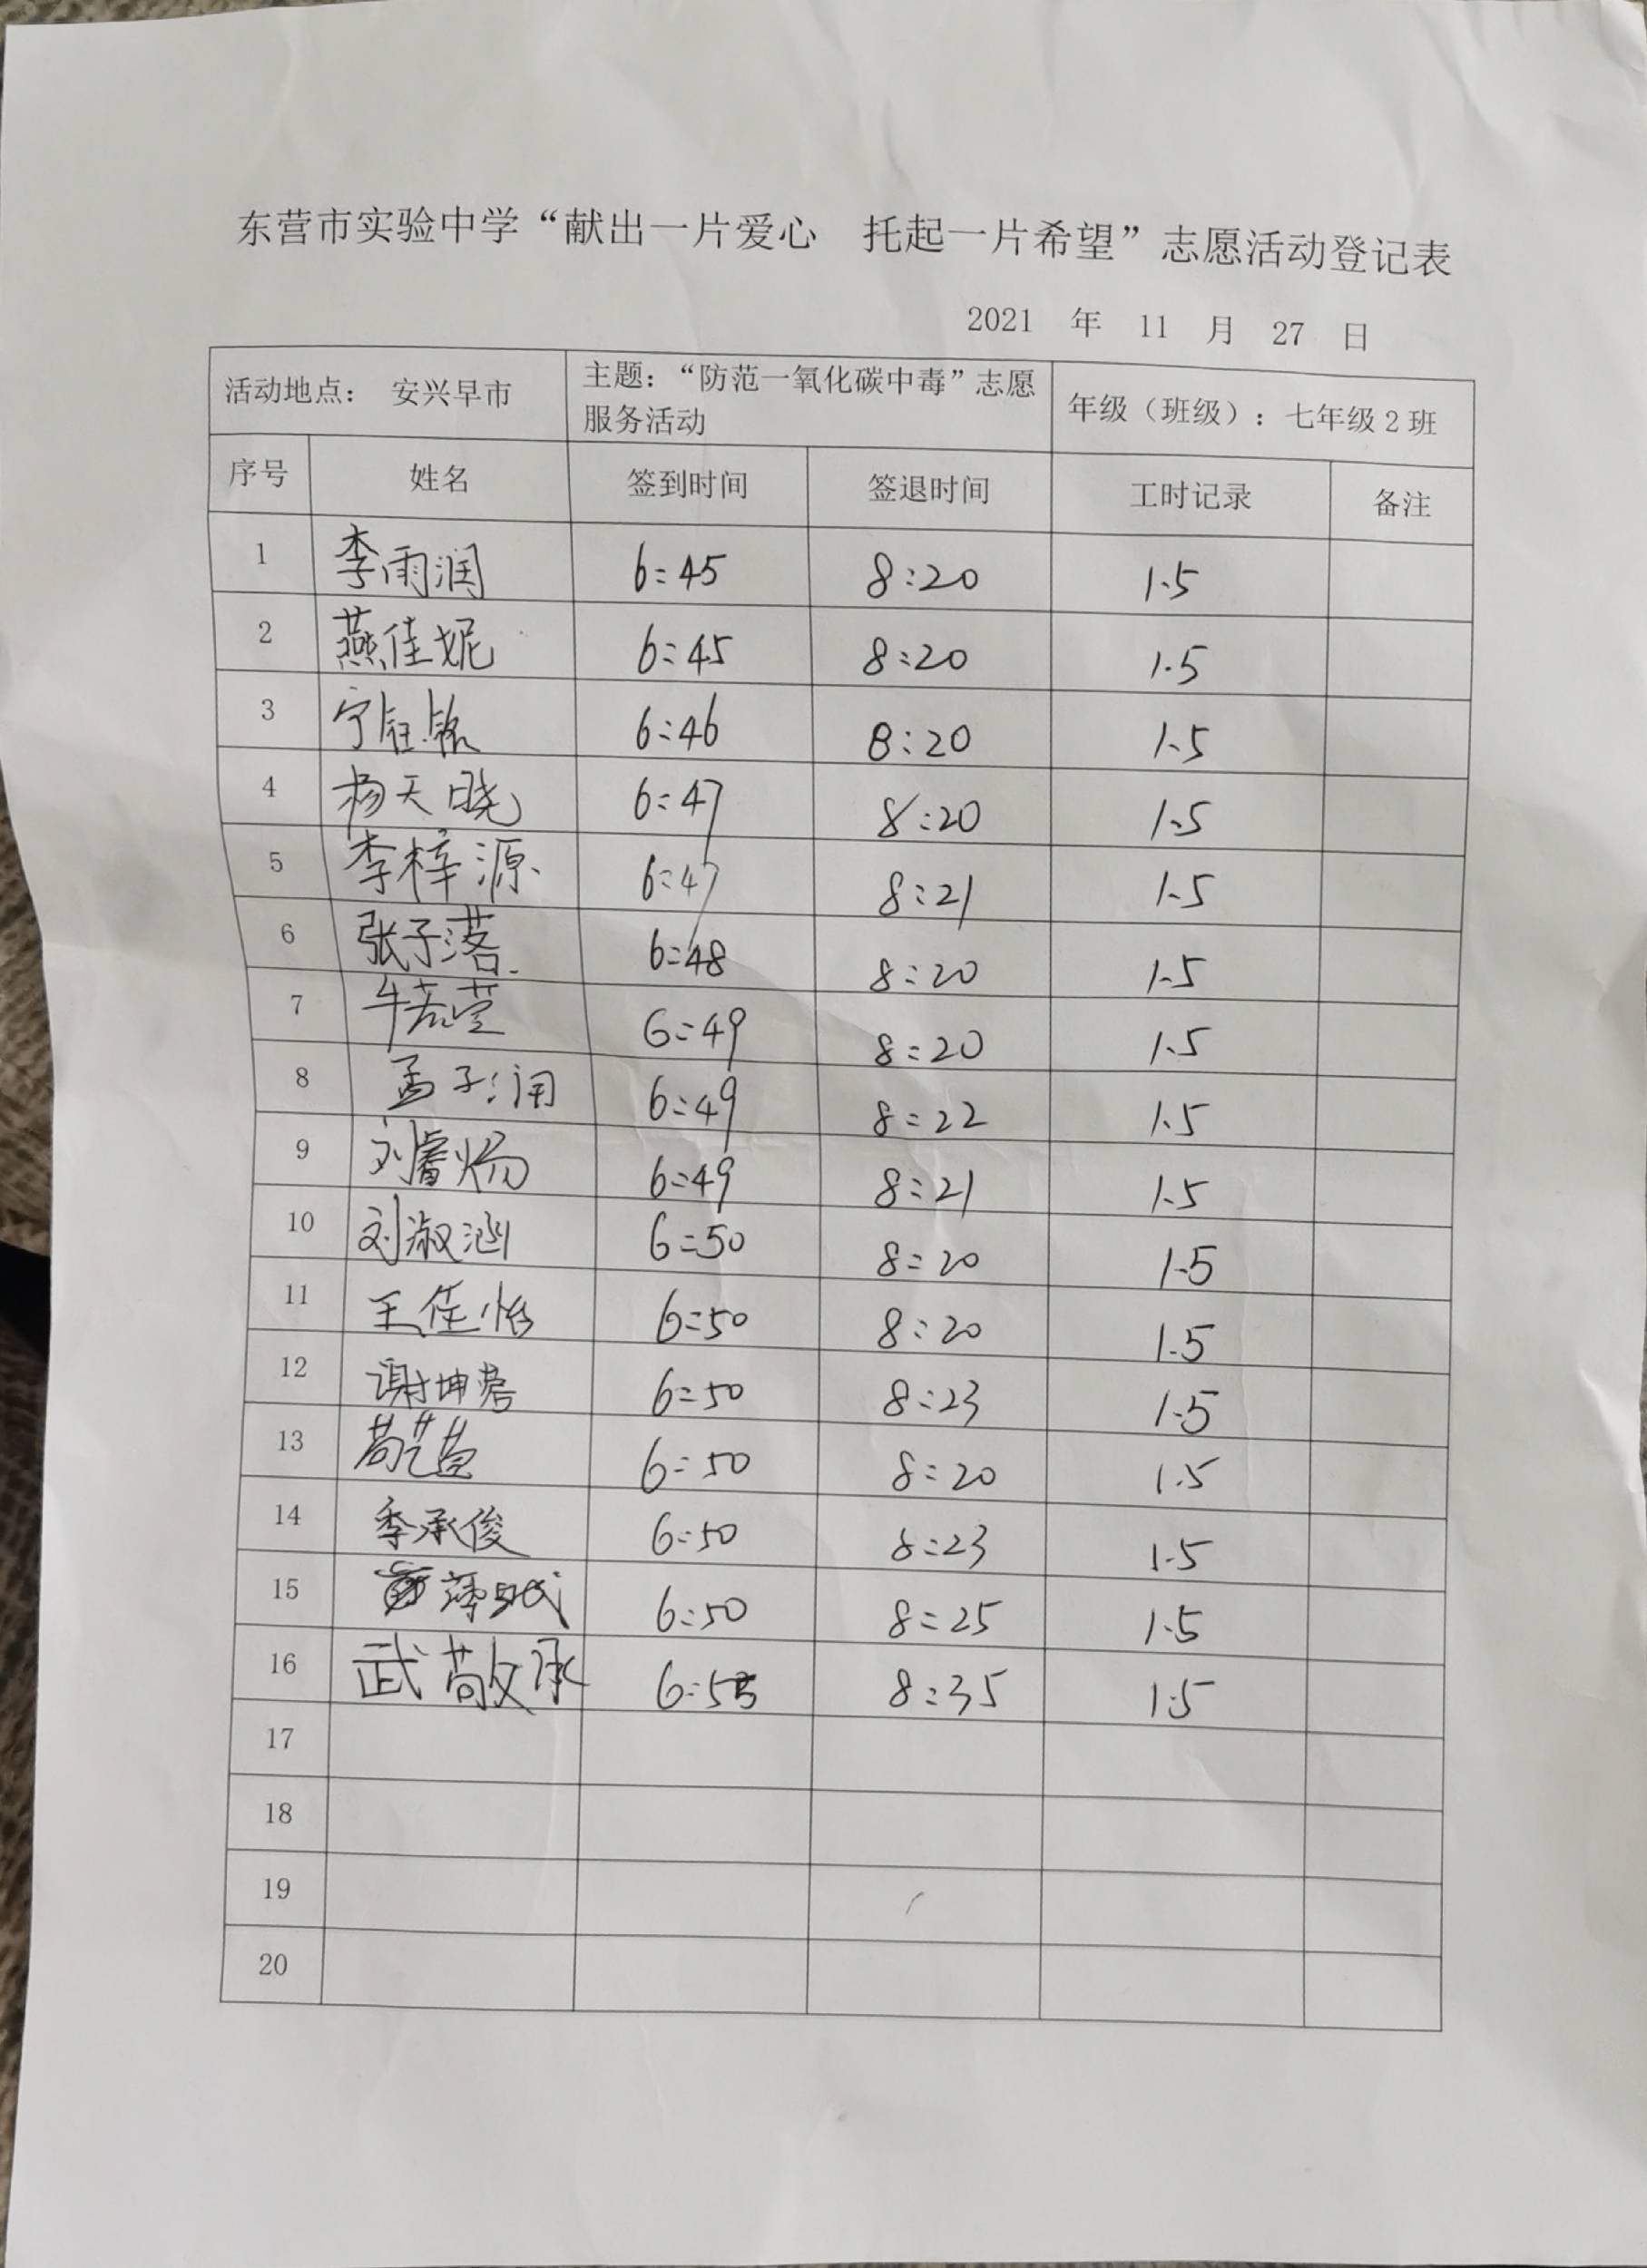 东营市实验中学“献出一片爱心 托起一片希望”志愿活动登记表
2021 年 11 月 27 日
活动地点： 安兴早市 主题：“防范一氧化碳中毒”志愿服务活动 年级（班级）：七年级2班
序号 姓名 签到时间 签退时间 工时记录 备注
1 李雨润 6:45 8:20 1.5
2 燕佳妮 6:45 8:20 1.5
3 宁钰铭 6:46 8:20 1.5
4 杨天晓 6:47 8:20 1.5
5 李梓源 6:47 8:21 1.5
6 张子落 6:48 8:20 1.5
7 牛若萱 6:49 8:20 1.5
8 孟子润 6:49 8:22 1.5
9 刘睿炀 6:49 8:21 1.5
10 刘淑涵 6:50 8:20 1.5
11 王佳怡 6:50 8:20 1.5
12 谢坤君 6:50 8:23 1.5
13 6:50 8:20 1.5
14 季承俊 6:50 8:23 1.5
15 6:50 8:25 1.5
16 武敬承 6:55 8:35 1.5
17
18
19
20